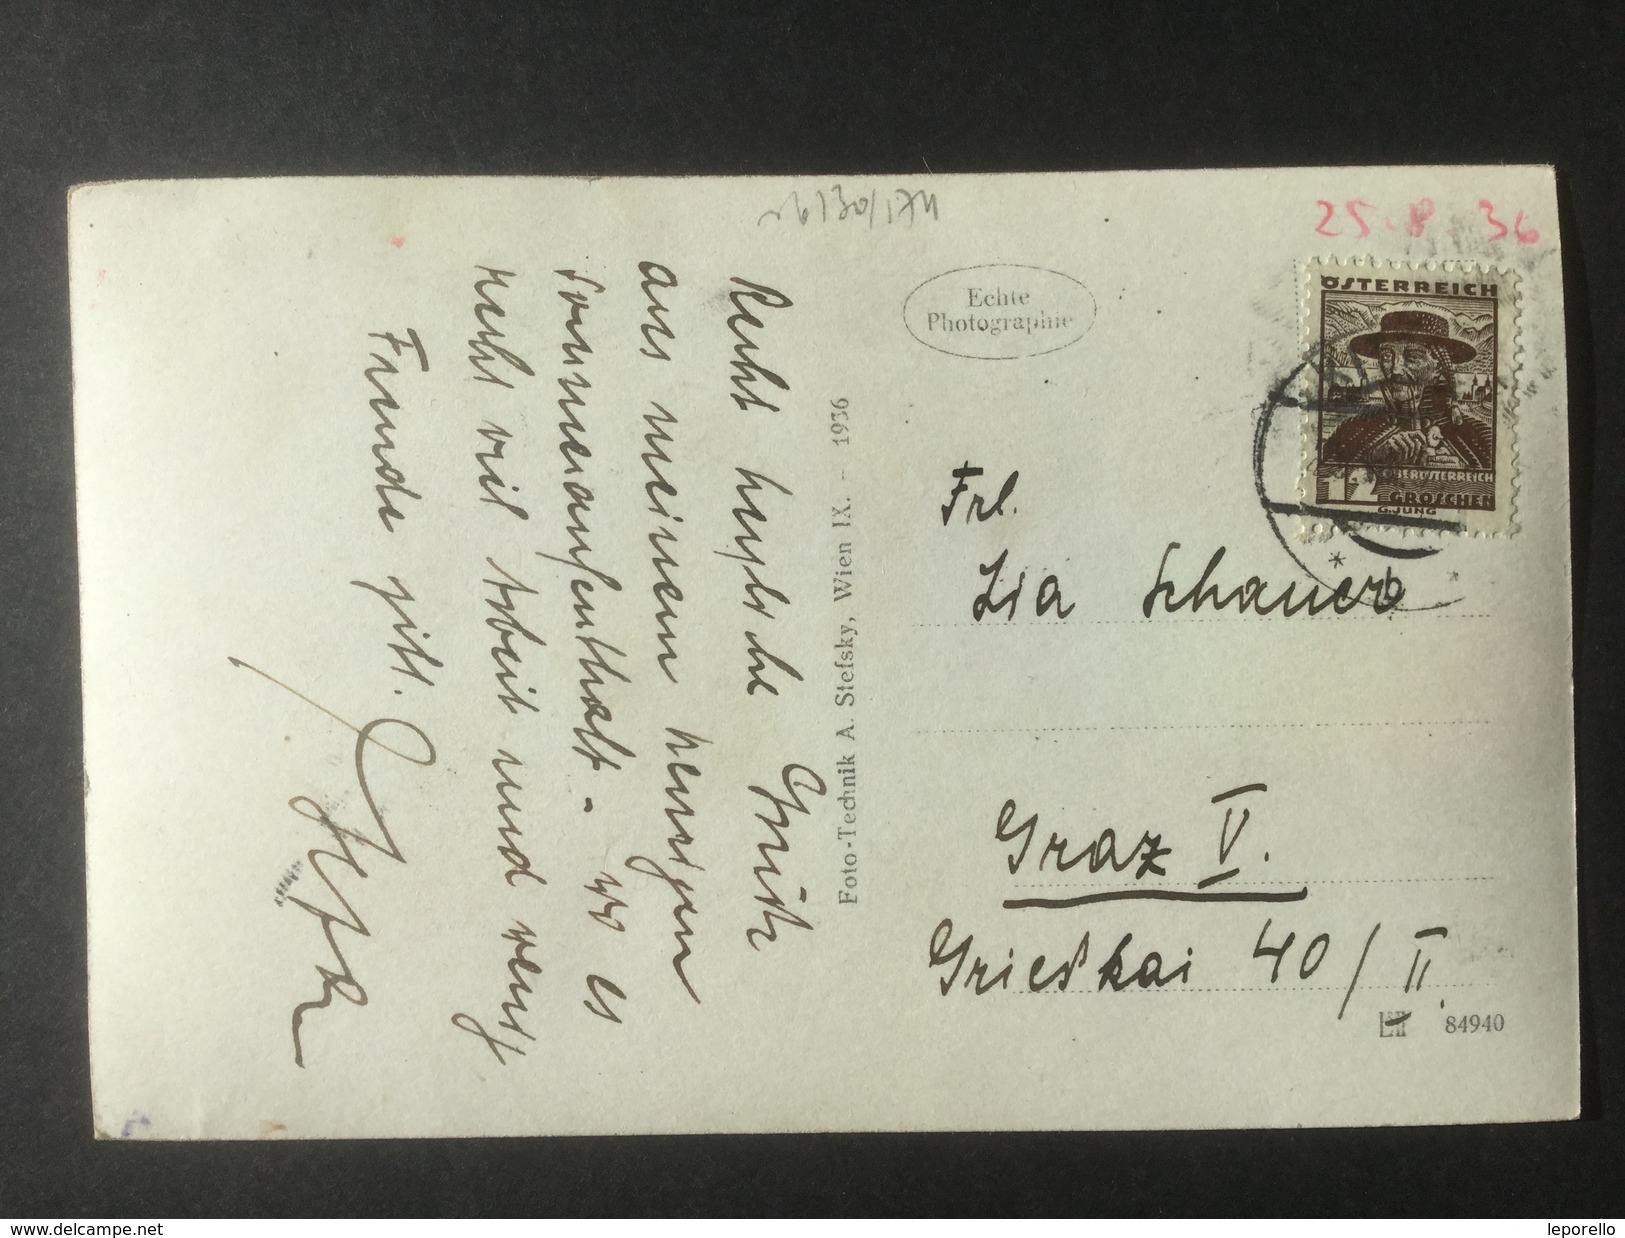 25. 8. 36
Echte
Photographie
ÖSTERREICH
OBERÖSTERREICH
12 GROSCHEN
G.JUNG
Recht herzliche Grüße
aus meinem heurigen
Sommeraufenthalt - wo es
recht viel Arbeit und wenig
Freude gibt.
Foto-Technik A. Stefsky, Wien IX. - 1936
Frl.
Lia Schauer
Graz V.
Grieskai 40/II.
84940
www.delcampe.net
leporello